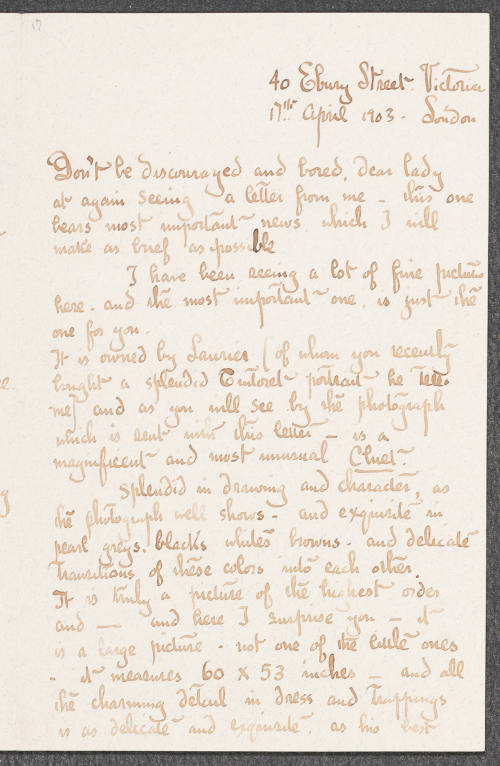 17
40 Ebury Street. Victoria
17th April 1903 - London
Don't be discouraged and bored, dear lady
at again seeing a letter from me - this one
bears most important news which I will
make as brief as possible
I have been seeing a lot of fine pictures
here. and the most important one. is just the
one for you.
It is owned by Lawrie (of whom you recently
bought a splendid Tintoret portrait he tells
me) and as you will see by the photograph
which is sent with this letter - is a
magnificent and most unusual Clouet.
Splendid in drawing and character, as
the photograph well shows. and exquisite in
pearl greys. blacks whites browns. and delicate
transitions of these colors into each other.
It is truly a picture of the highest order
and — and here I surprise you - it
is a large picture - not one of the little ones
- it measures 60 x 53 inches - and all
the charming detail in dress and trappings
is as delicate and exquisite. as his best